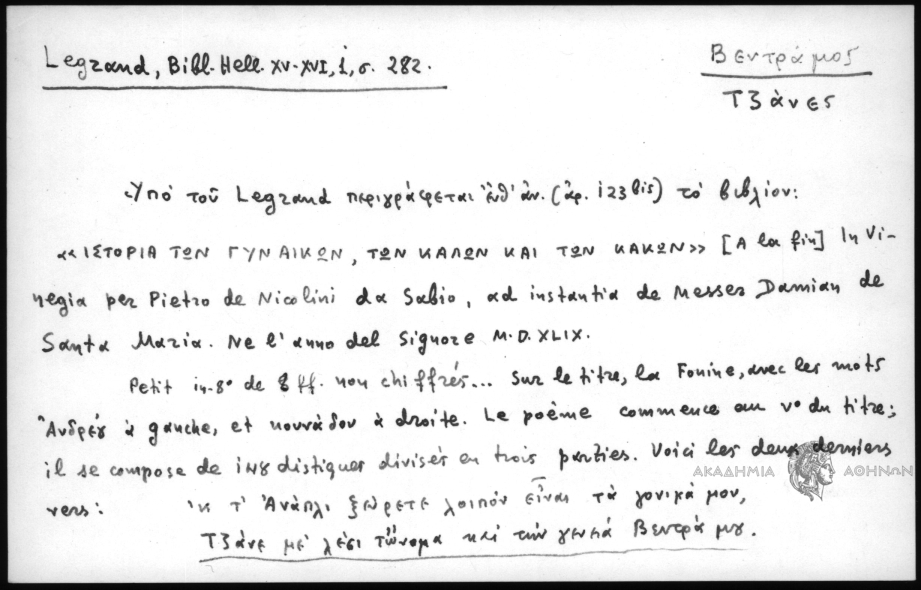 Legrand, Bibl. Hell. XV-XVI, 1, σ. 282.
Βεντράμος
Τζάνες
Ὑπό τοῦ Legrand περιγράφεται ἐνθ' ἀν. (ἀρ. 123 bis) τό βιβλίον:
«ΙΣΤΟΡΙΑ ΤΩΝ ΓΥΝΑΙΚΩΝ, ΤΩΝ ΚΑΛΩΝ ΚΑΙ ΤΩΝ ΚΑΚΩΝ» [A la fin] In Vi-
negia per Pietro de Nicolini da Sabio, ad instantia de Messer Damian de
Santa Maria. Ne l'anno del Signore M.D.XLIX.
Petit in-8° de 8 ff. non chiffrés... Sur le titre, la Fonine, avec les mots
Ἀνδρέου à gauche, et κουνάδου à droite. Le poême commence au v° du titre;
il se compose de 148 distiques divisés en trois parties. Voici les deux derniers
vers: 'κ τ' Ἀνάπλι ξεύρετε λοιπόν εἶναι τά γονικά μου,
Τζάνε μέ λέσι τὤνομα καί τήν γενεά Βεντράμου.
ΑΚΑΔΗΜΙΑ ΑΘΗΝΩΝ